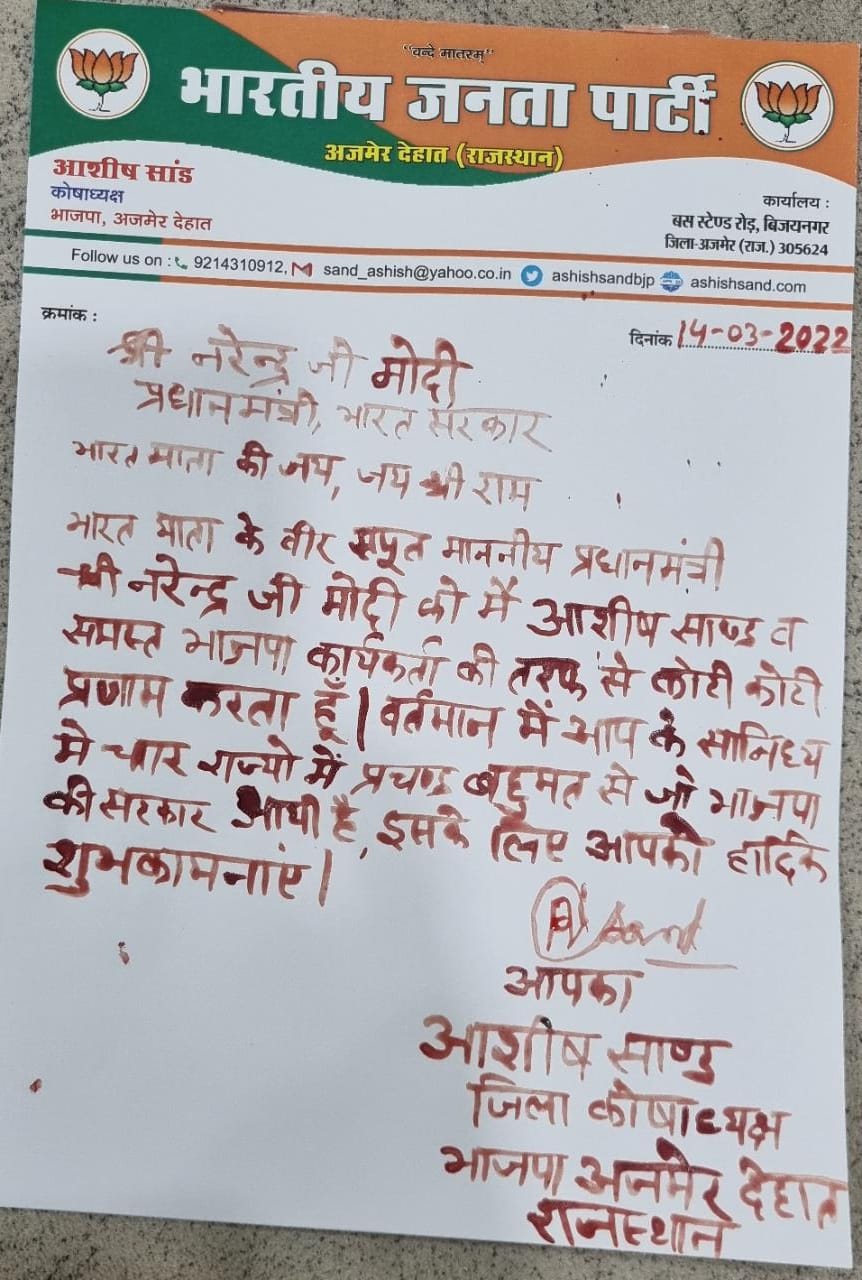 "वन्दे मातरम्"
भारतीय जनता पार्टी
अजमेर देहात (राजस्थान)
आशीष सांड
कोषाध्यक्ष
भाजपा, अजमेर देहात
कार्यालय :
बस स्टेण्ड रोड़, बिजयनगर
जिला-अजमेर (राज.) 305624
Follow us on : 9214310912, sand_ashish@yahoo.co.in ashishsandbjp ashishsand.com
क्रमांक :
दिनांक 14-03-2022
श्री नरेन्द्र जी मोदी
प्रधानमंत्री, भारत सरकार
भारत माता की जय, जय श्री राम
भारत माता के वीर सपूत माननीय प्रधानमंत्री
श्री नरेन्द्र जी मोदी को मैं आशीष साण्ड व
समस्त भाजपा कार्यकर्ता की तरफ से कोटी कोटी
प्रणाम करता हूँ। वर्तमान में आप के सानिध्य
मे चार राज्यो में प्रचण्ड बहुमत से जो भाजपा
की सरकार आयी है, इसके लिए आपको हार्दिक
शुभकामनाएं।
आपका
आशीष साण्ड
जिला कोषाध्यक्ष
भाजपा अजमेर देहात
राजस्थान